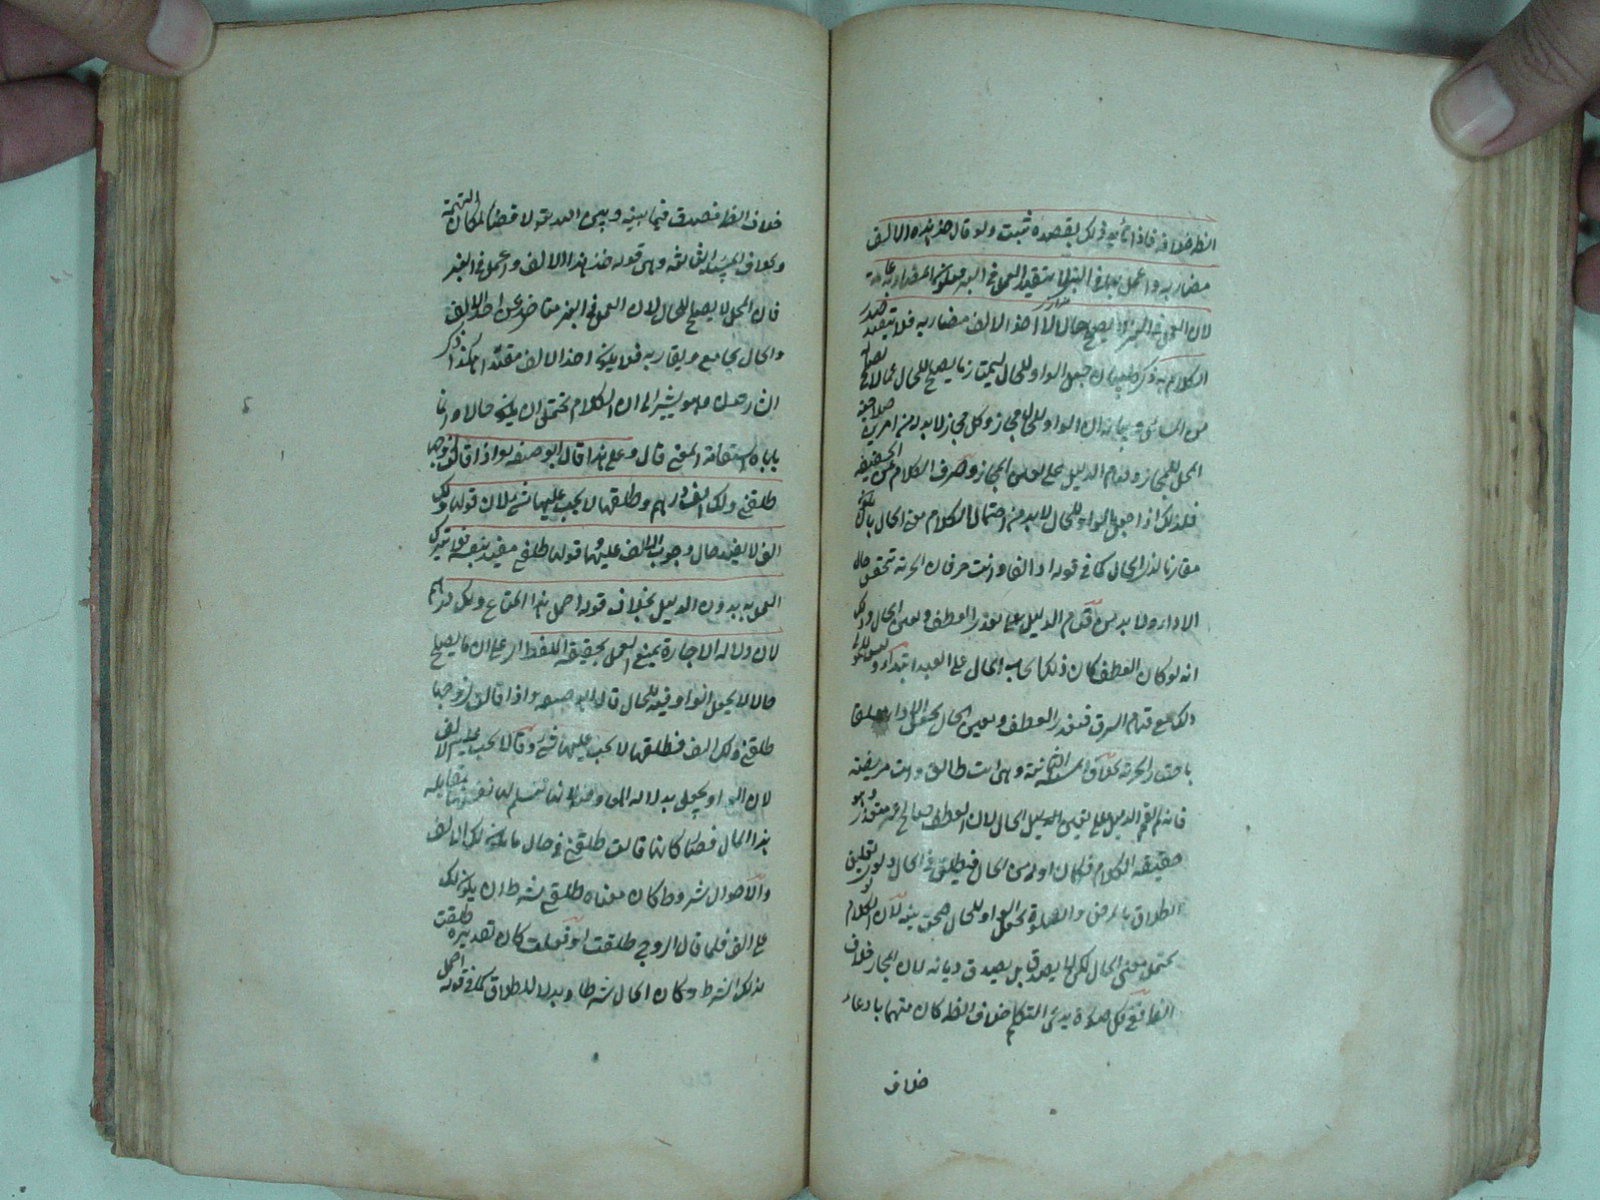 الظ خلافه فاذا تأيد ذلك بقصده ثبت ولو قال خذ هذه الالف
مضاربة واعمل بها في البز لا يتقيد العمل في البز فيكون المضاربة عامة
لان العمل في البز لا يصلح حالا لاخذ الالف مضاربة فلا يتقيد صدر
الكلام به ذكر حال الواو للحال ليمتاز ما يصلح للحال عما لا يصلح
من المسائل وبيانه ان الواو للحال مجاز وكل مجاز لا بد له من امرين صلاحية
المحل للمجاز وقيام الدليل على تعين المجاز وصرف الكلام عن الحقيقة
فلذلك اذا جعل الواو للحال لا بد من احتمال الكلام معنى الحال بان يكون
مقارنا لذي الحال كما في قوله اد الفا وانت حر فان الحرية تتحقق حال
الاداء ولا بد من قيام الدليل على تعذر العطف وتعين الحال وذلك
انه لو كان العطف كان ذلك ايجاب المال على العبد ابتداء وليس للمولى
ذلك مع قيام الرق فتعذر العطف وتعين الحال لجعل الاداء معلقا
بخلاف المسئلة الثانية وهي انت طالق وانت مريضة
فانه لم يقم الدليل على تعين الحال لان العطف صالح غير متعذر وهو
حقيقة الكلام فكان اولى من الحال فيطلق في الحال ولو نوى تعليق
الطلاق بالمرض والصلوة بجعل الواو للحال صحت نيته لان الكلام
يحتمل معنى الحال لكن لا يصدق بل يصدق ديانة لان المجاز خلاف
الظ ففي كل صورة يدعي المتكلم خلاف الظ كان متهما بادعاء
خلاف
خلاف الظ فيصدق فيما بينه وبين الله تعالى لا قضاء لمكان التهمة
وبخلاف المسئلة الثالثة وهي قوله خذ هذا الالف واعمل في البز
فان المحل لا يصلح للحال لان العمل في البز متاخر عن اخذ الالف
والحال يجامع ويقارنه فلا يكون اخذ الالف مقيدا هكذا ذكر
الشارحون وهو يشير الى ان الكلام يحتمل ان يكون حالا وانما
ياباه استقامة المعنى قال وعلى هذا قال ابو حنيفة اذا قالت لزوجها
طلقني ولك الف درهم وطلقها لا يجب عليها شئ لان قولها ولك
الف لا يفيد حال وجوب الالف عليها وقولها طلقني مفيد بنفسه فلا يترك
العمل به بدون الدليل بخلاف قوله احمل هذا المتاع ولك درهم
لان دلالة الاجارة يمنع العمل بحقيقة اللفظ اي على ان ما يصلح
حالا لا يجعل الواو فيه للحال قال ابو حنيفة اذا قالت لزوجها
طلقني ولك الف فطلقها لا يجب عليها شئ وقالا يجب عليها الالف
لان الواو يجعل بدلالة المعاوضة لانها تسلم لها نفسها بمقابلة
هذا المال فصار كانها قالت طلقني في حال ما يكون لك الالف
والاحوال شروط كان معناه طلقني بشرط ان يكون لك
على الف فلما قال الزوج طلقت او فعلت كان تقديره طلقت
بذلك الشرط وكان المال شرطا وبدلا للطلاق كما في قوله احمل